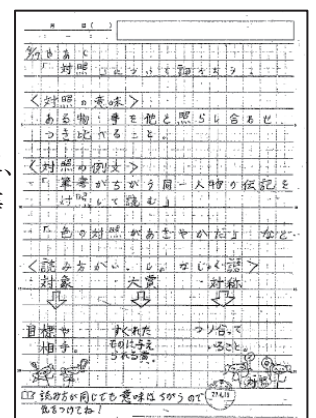 月 日( )
めあて
「対照」について調べよう。
<対照の意味>
ある物・事を他と照らし合わせ、
つき比べること。
<対照の例文>
・「筆者がちがう同一人物の伝記を
対照して読む」
・「色の対照があざやかだ」など
<読み方がいっしょなじゅく語>
対象 大賞 対称
目標や すぐれた つり合って
相手。 ものに与え いること。
られる賞。
対照
読み方が同じでも意味はちがうので
気をつけてね!